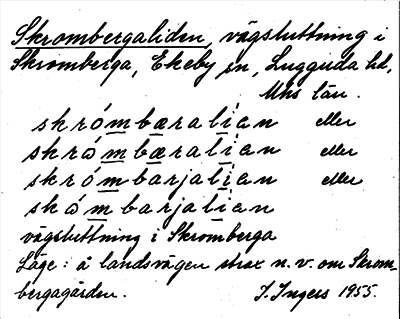 Skrombergaliden, vägsluttning i
Skromberga, Ekeby sn, Luggude hd,
Mhs län.
skrómbæralían eller
skrámbæralían eller
skrómbarjalían eller
skámbarjalían
vägsluttning i Skromberga
Läge: å landsvägen strax n.v. om Skrom-
bergagården. I. Ingers 1955.